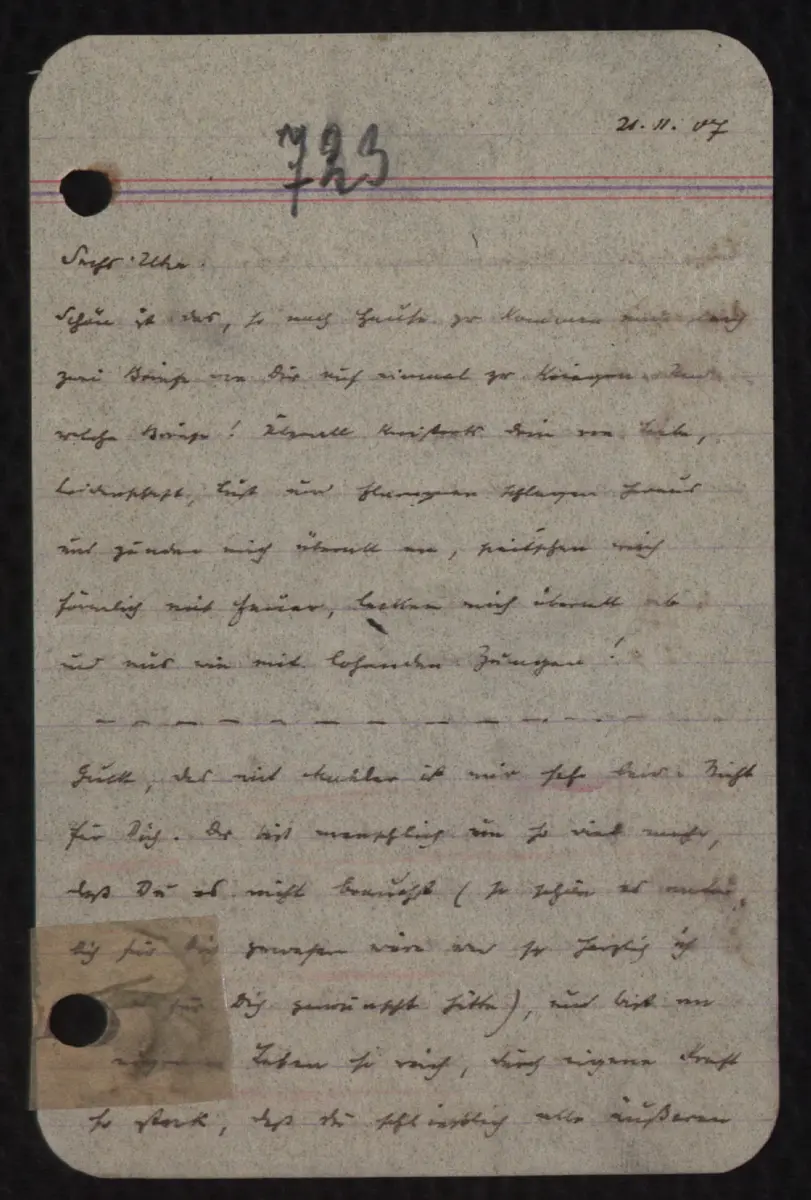 21.11.07
723
Sechs Uhr.
Schön ist das, so nach Hause zu kommen und auch
zwei Briefe von Dir auf einmal zu kriegen. Und
welche Briefe! Überall knistert's drin von Liebe,
Leidenschaft, Lust und Flammen schlagen heraus
und zünden mich überall an, peitschen mich
förmlich mit Feuer, lecken mich überall ab
und aus wie mit lohenden Zungen!
— — — — — — — — — — — —
Guck, das mit Mahler ist mir sehr leid. Nicht
für Dich. Du bist menschlich um so viel mehr,
daß Du es nicht brauchst (so schön es
für Dich gewesen wäre und so herzlich ich
es für Dich gewünscht hätte), und bist an
eigenem Leben so reich, durch eigene Kraft
so stark, daß Du schliesslich alle äußeren